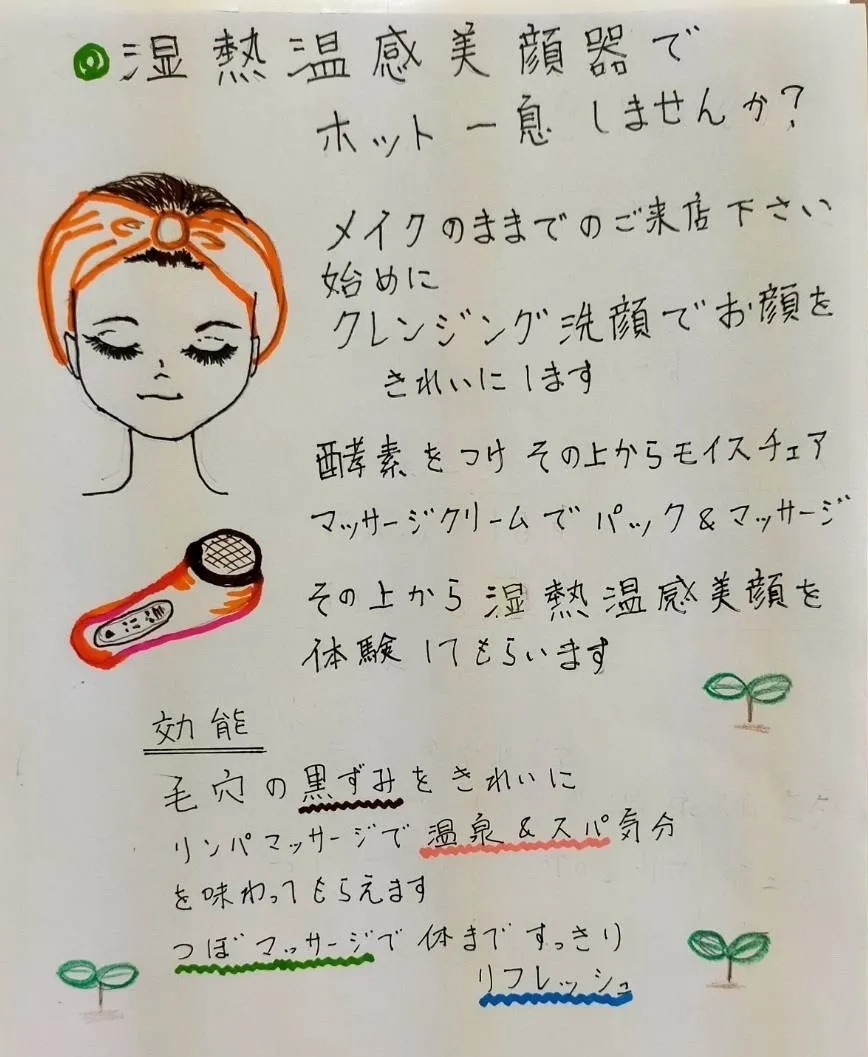 湿熱温感美顔器で
ホット一息しませんか?
メイクのままでのご来店下さい
始めに
クレンジング洗顔でお顔を
きれいにします
酵素をつけその上からモイスチェア
マッサージクリームでパック&マッサージ
その上から湿熱温感美顔を
体験してもらいます
効能
毛穴の黒ずみをきれいに
リンパマッサージで温泉&スパ気分
を味わってもらえます
つぼマッサージで体まですっきり
リフレッシュ